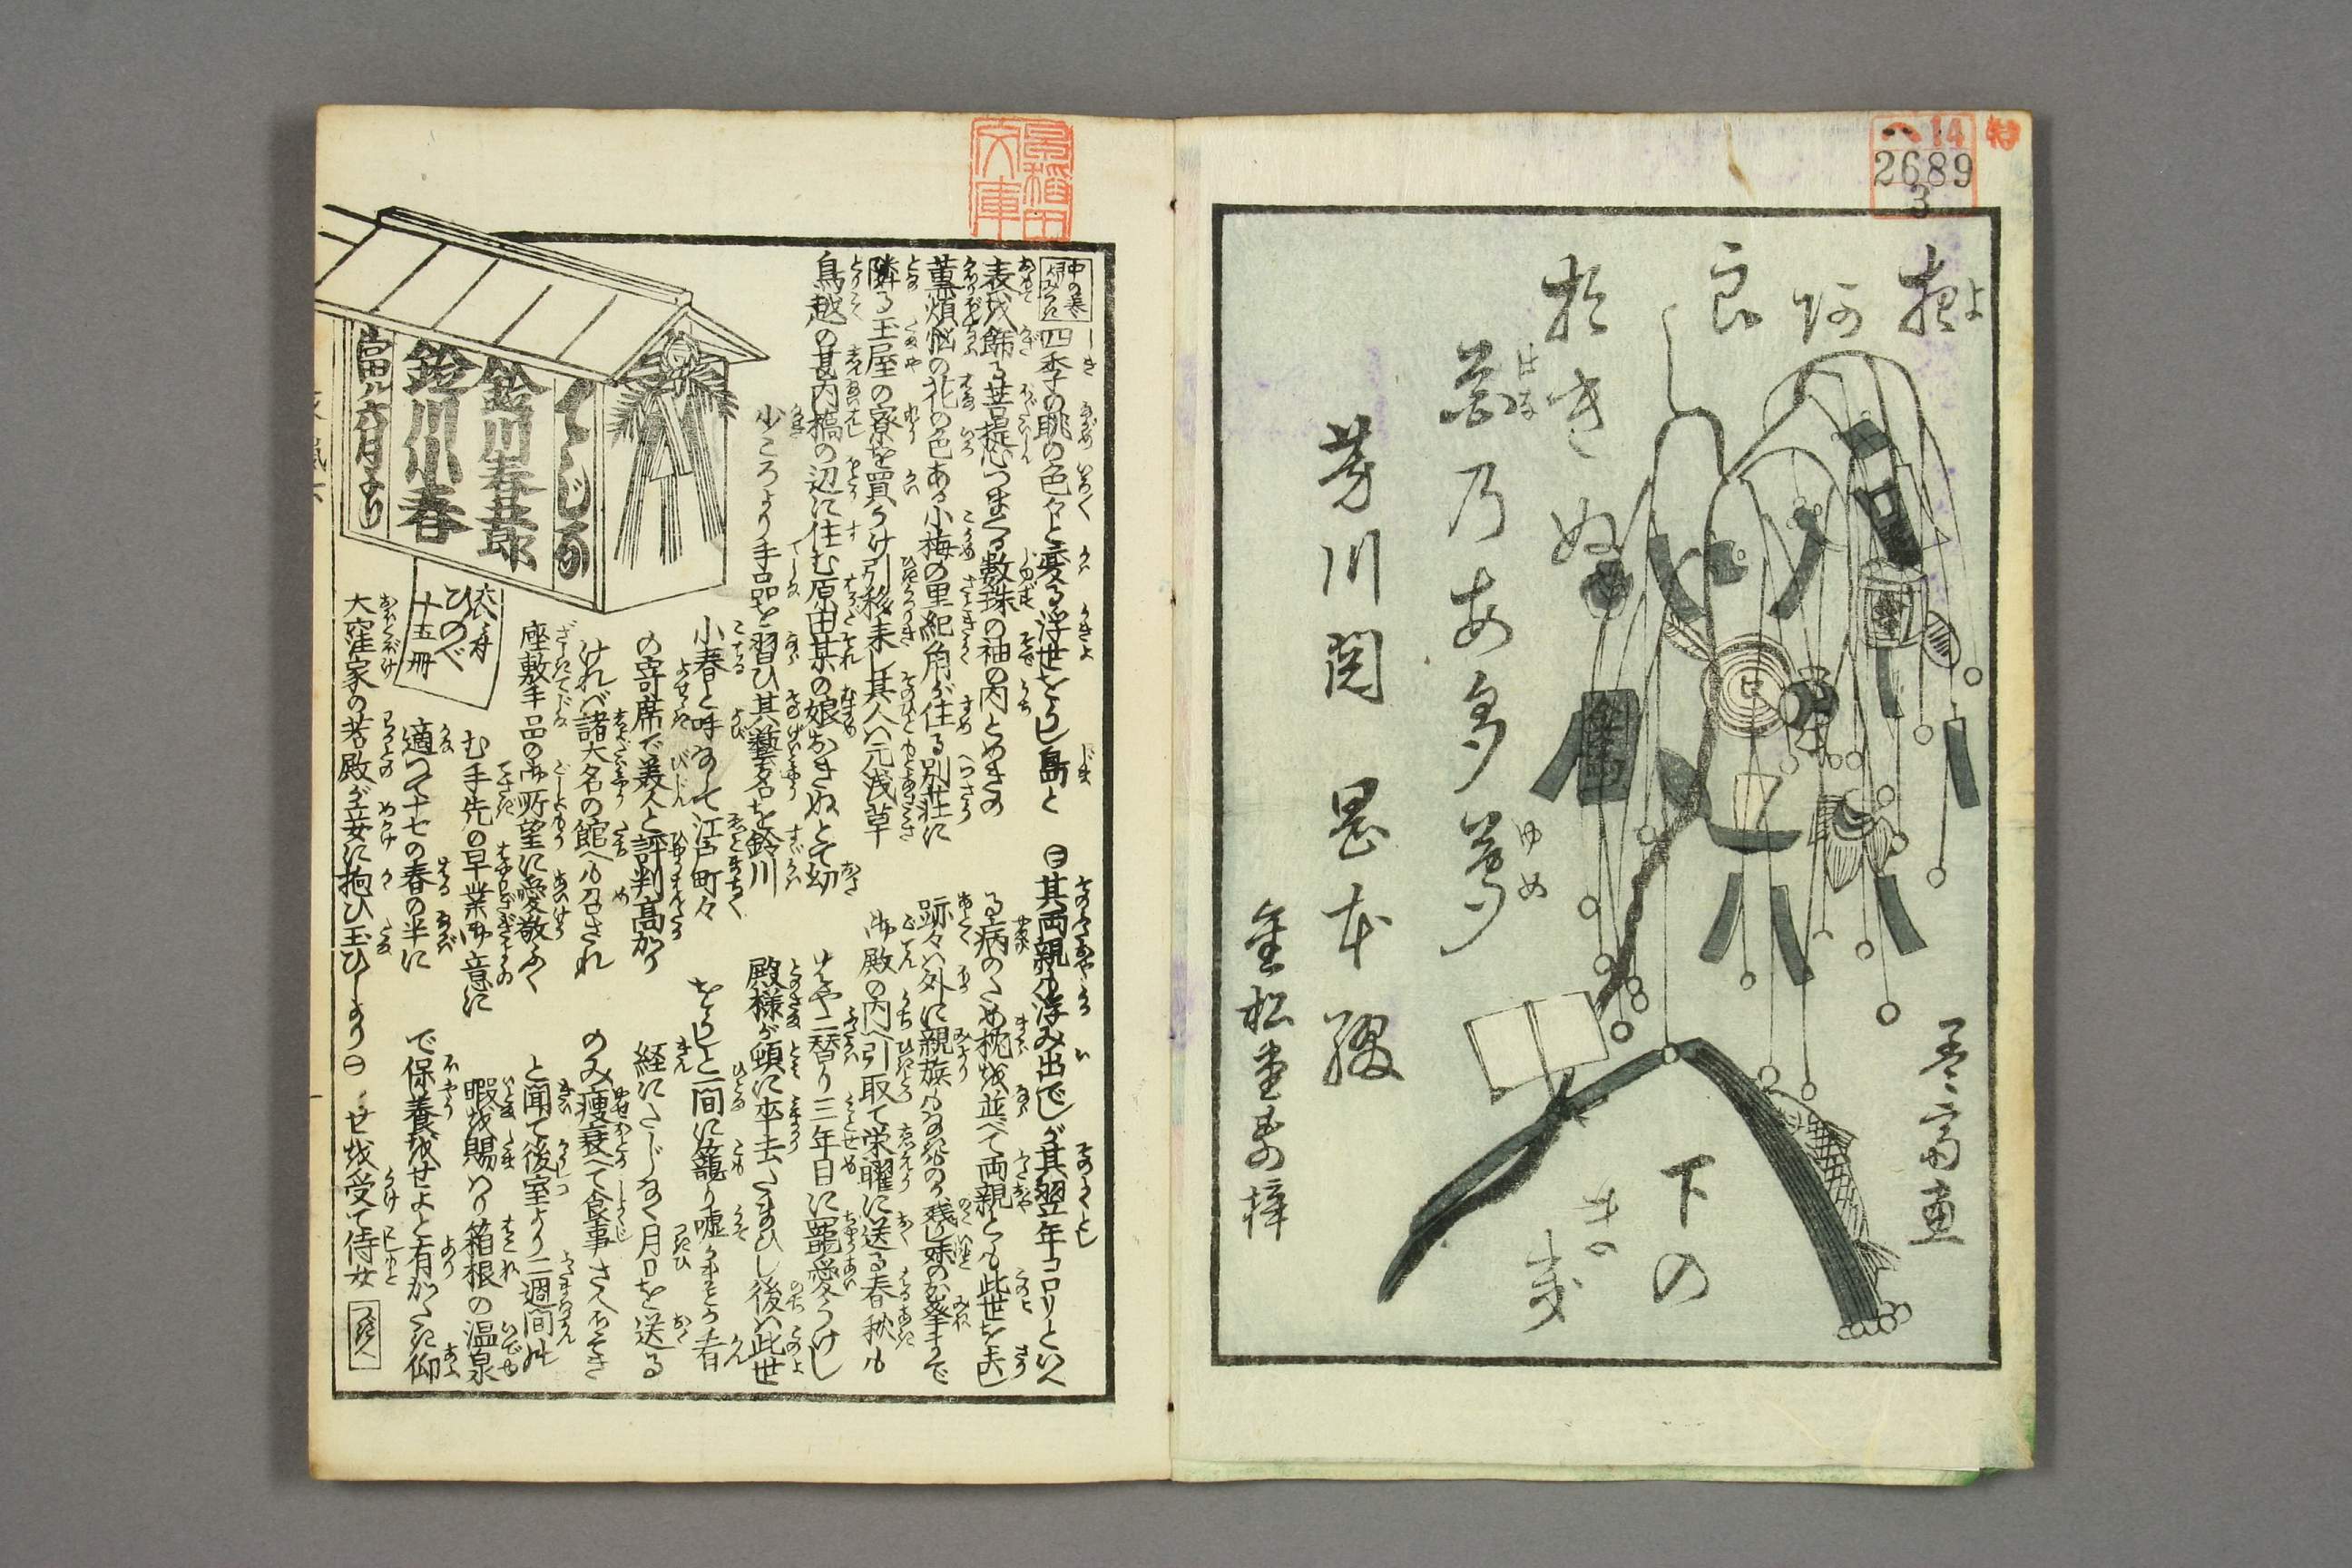 特
ヘ14
2689
3
夜
阿
良
し
於
き
ぬ
花乃あだ夢
はな
ゆめ
芳川関
岡本綴
金松堂寿梓
孟斎画
下の
まき
早稲田文庫
中の巻
四季の眺の色々と変る浮世をよし島と
表を飾る菩提心つまぐる数珠の袖の内とめきの
薫煩悩の花の色ある小梅の里紀角が住る別荘に
隣る玉屋の寮を買うけ引移来し其人ハ元浅草
鳥越の甚内橋の辺に住む原田某の娘おきぬとて幼
少ころより手品を習ひ其藝名を鈴川
小春と呼なして江戸町々
の寄席で美人と評判高かり
ければ諸大名の館へも召され
座敷手品の御所望に愛敬ふく
む手先の早業御意に
適つて十七の春の半に
大窪家の若殿が妾に抱ひ玉ひしより㊀
㊁其両親も浮み出でしが其翌年コロリといへ
る病のため枕を並べて両親とも此世を去し
跡々ハ外に親族もなければ残りし妹のお峯まで
御殿の内へ引取て栄曜に送る春秋も
はや二替り三年目に寵愛うけし
殿様が頓に卒去たまひし後ハ此世
をよしと一間に籠り嘘かまことか看
経にたじなく月日を送る
のみ痩衰へて食事さへおそき
と聞て後室より二週間の
暇を賜ハり箱根の温泉
で保養をせよと有がたき仰
せを受て侍女
つぎへ
てじな
鈴川春五郎
鈴川小春
当ル六月より
ひのべ
十五冊